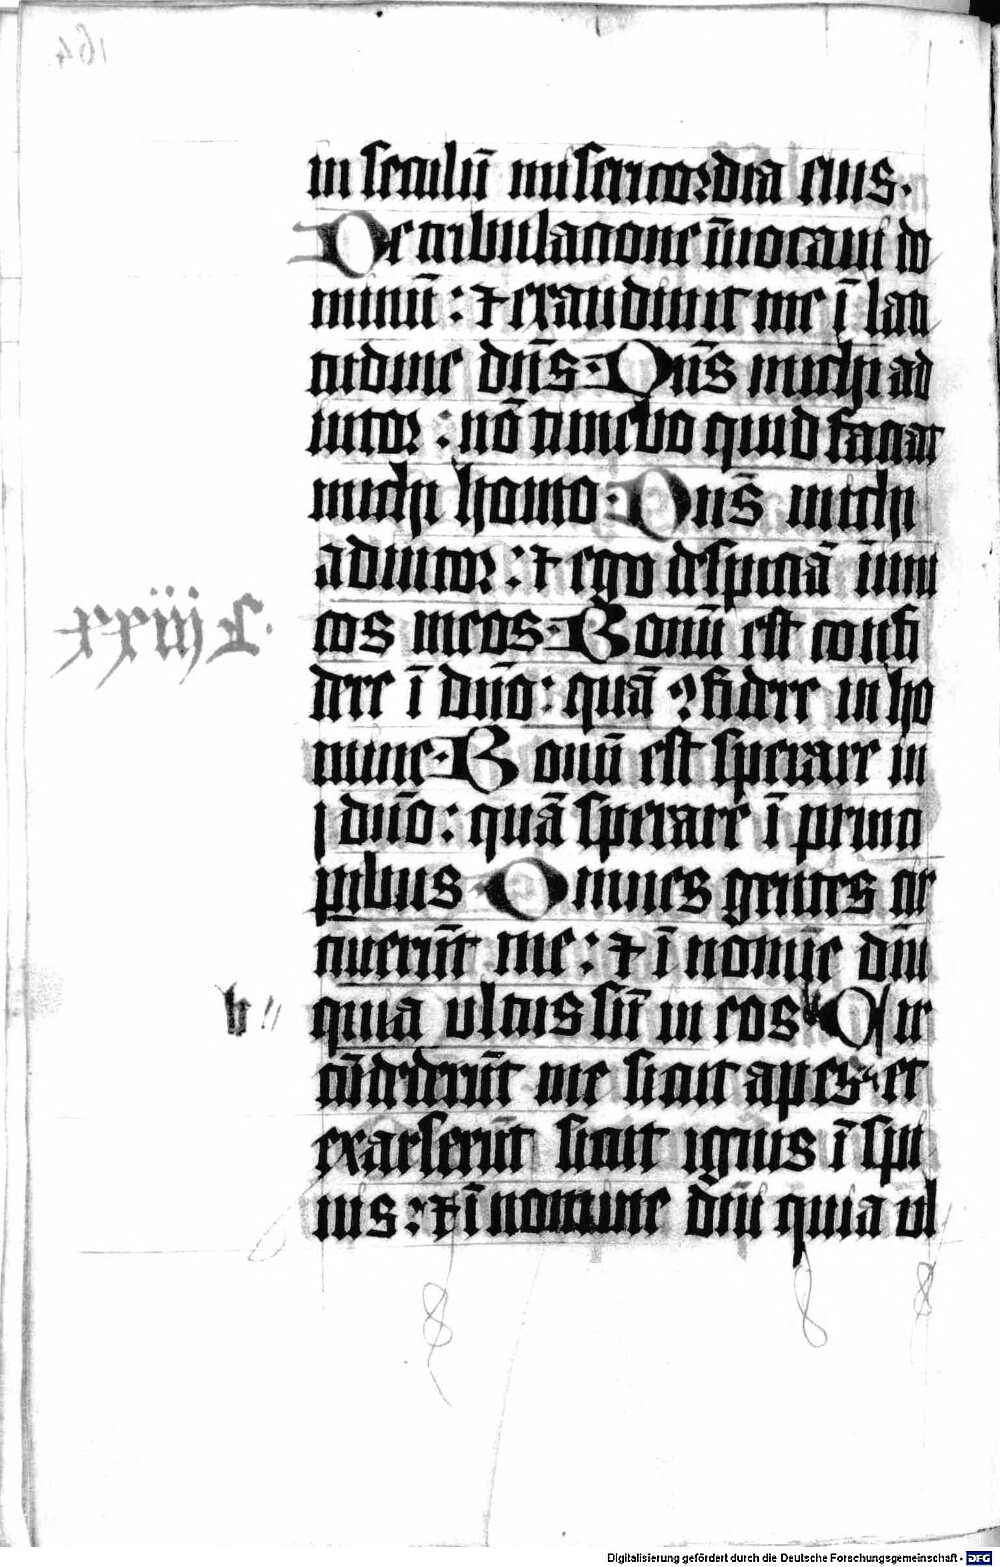 in seculū misericordia eius.
De tribulatione īuocaui do
minū : ⁊ exaudiuit me ī lati
tudine dn̄s· Dn̄s michi ad
iutor : nō timebo quid faciat
michi homo· Dn̄s michi
adiutor : ⁊ ego despiciā inimi
cos meos· Bonū est confi
dere ī dn̄o : quā ꝯfidere in ho
mine· Bonū est sperare in
dn̄o : quā sperare ī princi
pibus Omnes gentes cir
cuierūt me : ⁊ ī nomīe dn̄i
quia ultus sū in eos Cir
cūdederūt me sicut apes et
exarserūt sicut ignis ī spi
nis : ⁊ ī nomine dn̄i quia ul
b
164
Digitalisierung gefördert durch die Deutsche Forschungsgemeinschaft - DFG